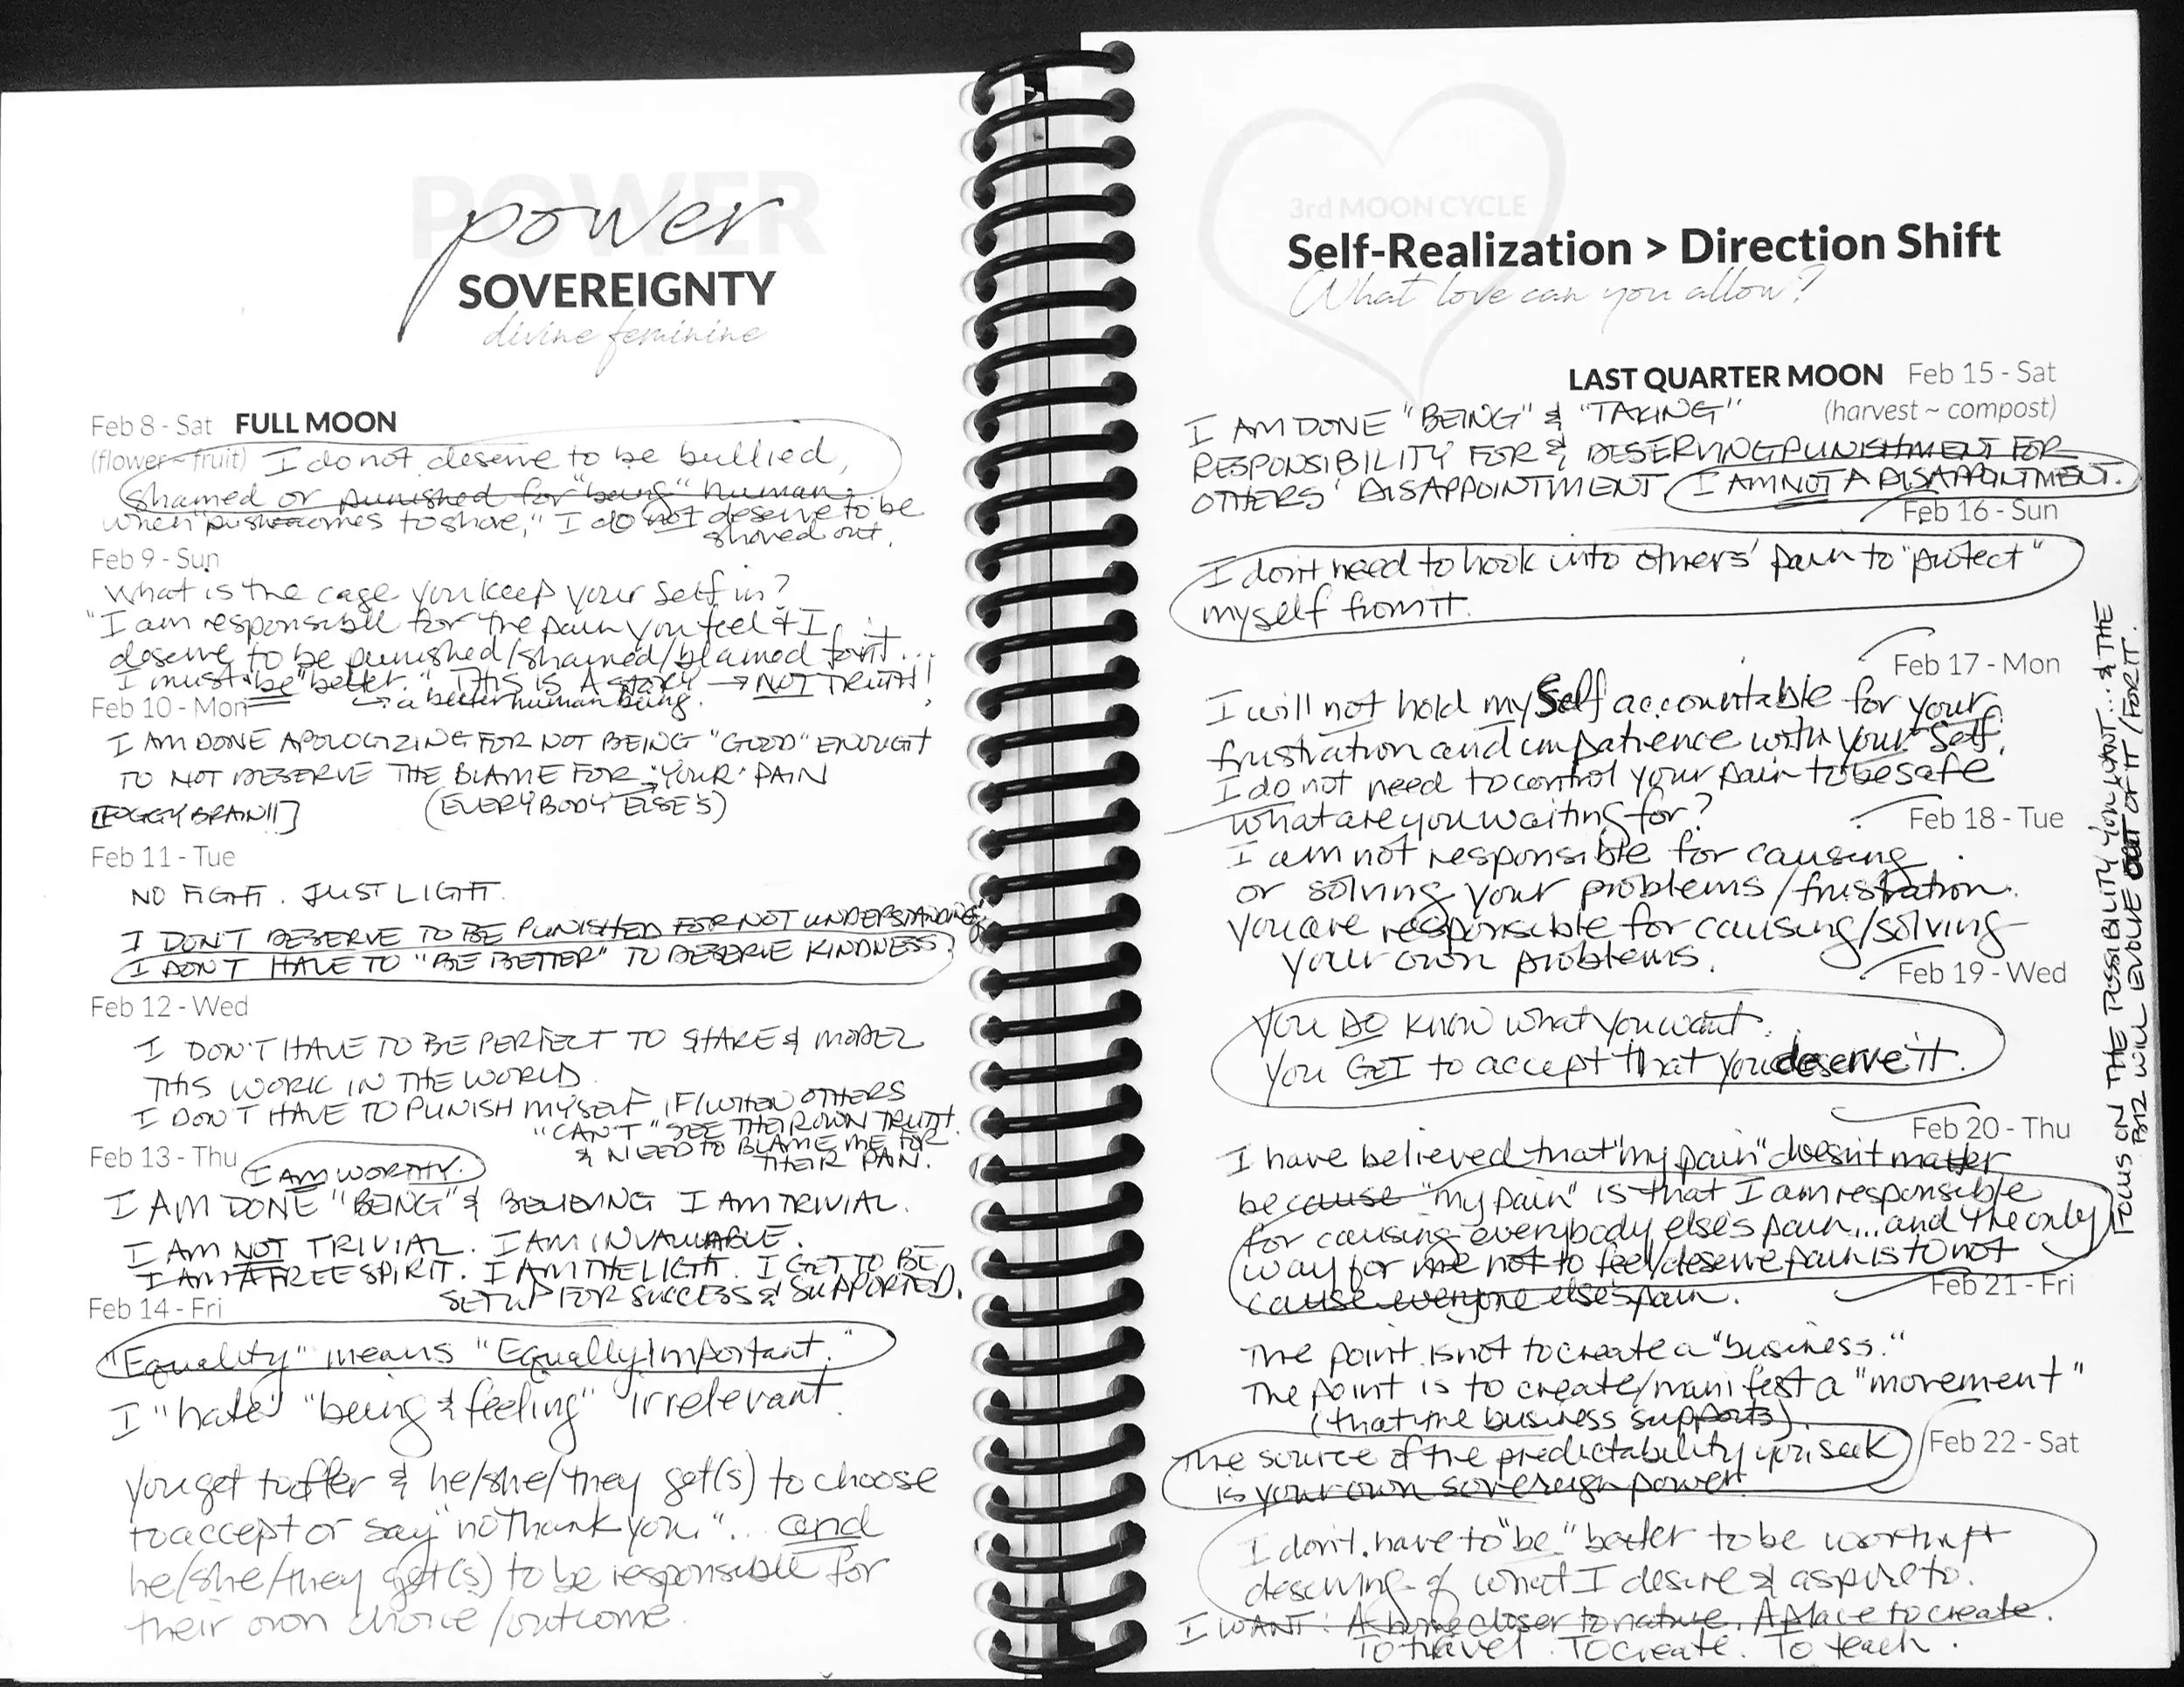 POWER
power
SOVEREIGNTY
divine feminine
Feb 8 - Sat FULL MOON
(flower ~ fruit) I do not deserve to be bullied,
shamed or punished for "being" human.
when "push comes to shove," I do not deserve to be
shoved out.
Feb 9 - Sun
What is the cage you keep your Self in?
"I am responsible for the pain you feel & I
deserve to be punished/shamed/blamed for it...
I must "be" better." THIS IS A STORY → NOT TRUTH!
↳ a better human being.
Feb 10 - Mon
I AM DONE APOLOGIZING FOR NOT BEING "GOOD" ENOUGH
TO NOT DESERVE THE BLAME FOR "YOUR" PAIN
[FOGGY BRAIN!!] (EVERYBODY ELSE'S)
Feb 11 - Tue
NO FIGHT. JUST LIGHT.
I DON'T DESERVE TO BE PUNISHED FOR NOT UNDERSTANDING
I DON'T HAVE TO "BE BETTER" TO DESERVE KINDNESS.
Feb 12 - Wed
I DON'T HAVE TO BE PERFECT TO SHARE & MODEL
THIS WORK IN THE WORLD
I DON'T HAVE TO PUNISH MYSELF IF/WHEN OTHERS
"CAN'T" SEE THEIR OWN TRUTH
& NEED TO BLAME ME FOR
THEIR PAIN.
Feb 13 - Thu I AM WORTHY.
I AM DONE "BEING" & BELIEVING I AM TRIVIAL.
I AM NOT TRIVIAL. I AM INVALUABLE.
I AM A FREE SPIRIT. I AM THE LIGHT. I GET TO BE
SETUP FOR SUCCESS & SUPPORTED.
Feb 14 - Fri
"Equality" means "Equally Important."
I "hate" "being & feeling" irrelevant.
you get to offer & he/she/they get(s) to choose
to accept or say "no thank you."... and
he/she/they get(s) to be responsible for
their own choice/outcome.
3rd MOON CYCLE
Self-Realization > Direction Shift
What love can you allow?
LAST QUARTER MOON Feb 15 - Sat
(harvest ~ compost)
I AM DONE "BEING" & "TAKING"
RESPONSIBILITY FOR & DESERVING PUNISHMENT FOR
OTHERS' DISAPPOINTMENT. I AM NOT A DISAPPOINTMENT.
Feb 16 - Sun
I don't need to hook into others' pain to "protect"
myself from it.
Feb 17 - Mon
I will not hold my Self accountable for your
frustration and impatience with your Self.
I do not need to control your pain to be safe
what are you waiting for?
Feb 18 - Tue
I am not responsible for causing
or solving your problems/frustration.
you are responsible for causing/solving
your own problems.
Feb 19 - Wed
You DO know what you want.
You GET to accept that you deserve it.
Feb 20 - Thu
I have believed that "my pain" doesn't matter
because "my pain" is that I am responsible
for causing everybody else's pain... and the only
way for me not to feel/deserve pain is to not
cause everyone else's pain.
Feb 21 - Fri
The point is not to create a "business."
The point is to create/manifest a "movement"
(that the business supports).
Feb 22 - Sat
The source of the predictability you seek
is your own sovereign power.
I don't have to "be" better to be worthy
deserving of what I desire & aspire to.
I WANT: A home closer to nature. A place to create.
To travel. To create. To teach.
FOCUS ON THE POSSIBILITY YOU WANT... & THE
WILL EVOLVE OUT OF IT/FOR IT.